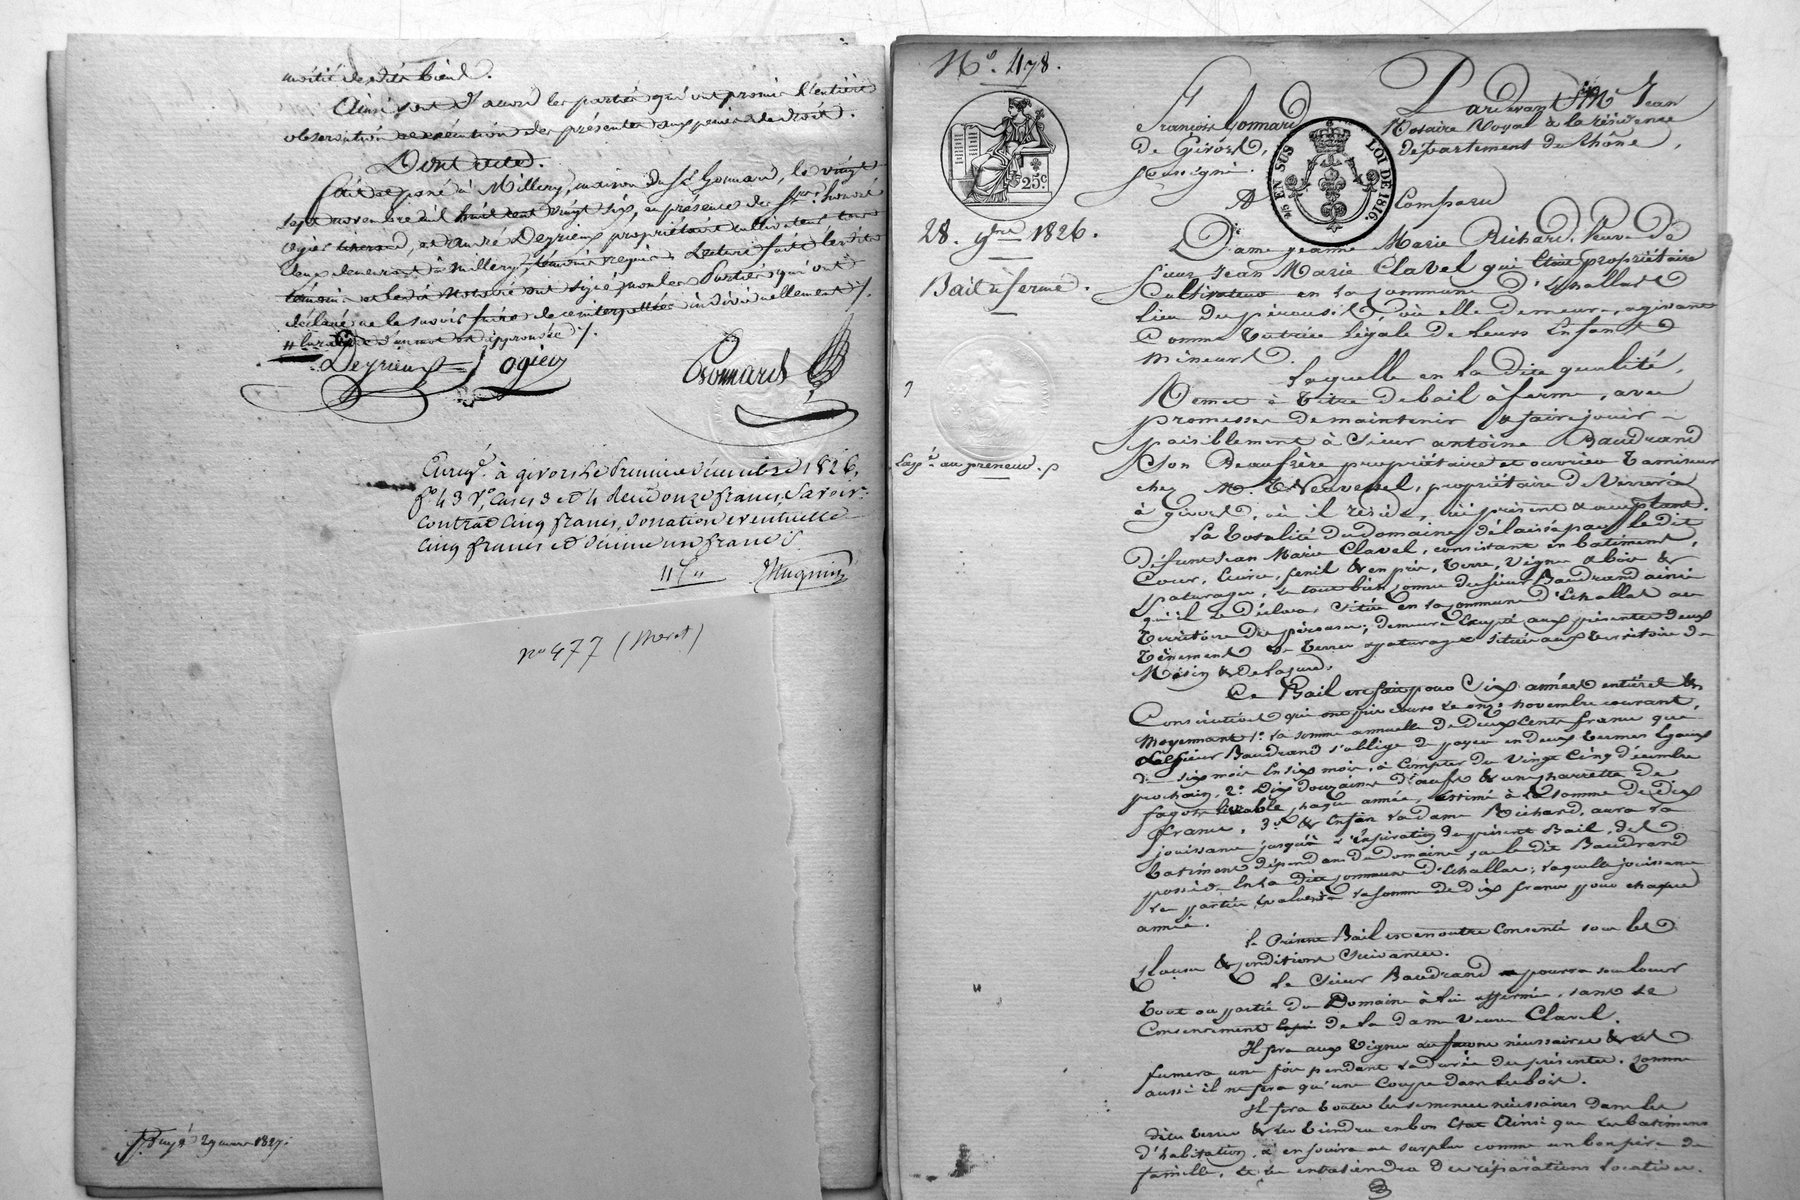 moitié desdits biens.
Ainsi sont d'accord les parties qui ont promis l'entière
observation et exécution des présentes aux peines de droit.
Dont acte.
fait et passé à Millery, maison du Sr. Gonnard, le vingt
sept novembre mil huit cent vingt six, en présence des Srs. honoré
ogier et andré Deyrieux propriétaires cultivateurs tous
deux demeurant à millery, témoins requis Lecture faite lesdits
témoins et ledit Notaire ont signé non les Parties qui ont
déclaré ne le savoir faire de ce interpellées individuellement ./.
d'un mot est approuvée ./.
Deyrieux ogier Gonnard
Enregé. à givors le premier décembre 1826,
fo. 43 Vo, cases 3 et 4 reçu onze francs, Savoir:
contrat cinq francs, donation eventuelle
cinq francs et décime un franc
no 477 (Meret)
1827.
No. 478.
25c
28. 9bre 1826.
Bail à ferme.
Exp. au preneur.
EN SUS LOI DE 1816.
Pardevant Me Jean
François Gonnard Notaire Royal à la résidence
De Givors, département du Rhône,
soussigné.
A Comparu
Dme Jeanne Marie Richard, Veuve de
Sieur Jean Marie Clavel qui était propriétaire
Cultivateur en la commune d'Echallas
Lieu du pérousil, où elle demeure, agissant
Comme tutrice légale de leurs Enfants
mineurs.
Laquelle en la dite qualité,
Remet à titre de bail à ferme, avec
promesse de maintenir & faire jouir
paisiblement à Sieur antoine Baudrand
Son Beaufrère propriétaire et ouvrier tamiseur
chez M. Neuvesel, propriétaire de Verrerie
à givors, où il réside, ici présent & acceptant.
La totalité du domaine délaissé par le dit
défunt Jean Marie Clavel, consistant en batiment,
Cour, Cuve, fenil & en pré, terre, vigne, bois &
paturage, le tout bien connu du sieur Baudrand ainsi
qu'il le déclare, située en la commune d'Echallas au
territoire du pérousil; demeure Excepté aux présentes deux
tènements de terre & paturage situés aux territoire de
Ce Bail est fait pour Six années entières &
Consécutives qui ont pris cours le onze novembre courant,
moyennant 1o. la somme annuelle de deux cents francs que
Ledit Sieur Baudrand s'oblige de payer en deux termes Egaux
de six mois En six mois, à Compter du vingt Cinq décembre
prochain, 2o. Dix douzaines d'oeufs & un charrette de
fagots livrable chaque année, Estimé à la somme de dix
francs, 3o. & Enfin la dame Richard, aura la
jouissance jusqu'à l'Expiration du présent Bail, des
batiments dépendant du domaine que le dit Baudrand
possède En la dite commune d'Echallas; laquelle jouissance
les parties Evaluent à la somme de dix francs pour chaque
année.
Le Présent Bail est en outre Consenti sous les
clauses & conditions suivantes.
Le Sieur Baudrand ne pourra sous louer
tout ou partie du Domaine à lui affermé, sans le
Consentement de la dame Veuve Clavel.
Il fera aux vignes les fosses nécessaires & les
fumera une fois pendant la durée des présentes, comme
aussi il ne fera qu'une Coupe dans les bois.
Il fera toutes les semences nécessaires dans les
dites terres & les tiendra en bon Etat Ainsi que les batiments
d'habitation, & en jouira au surplus comme un bon père de
famille, & les entretiendra des réparations locatives.